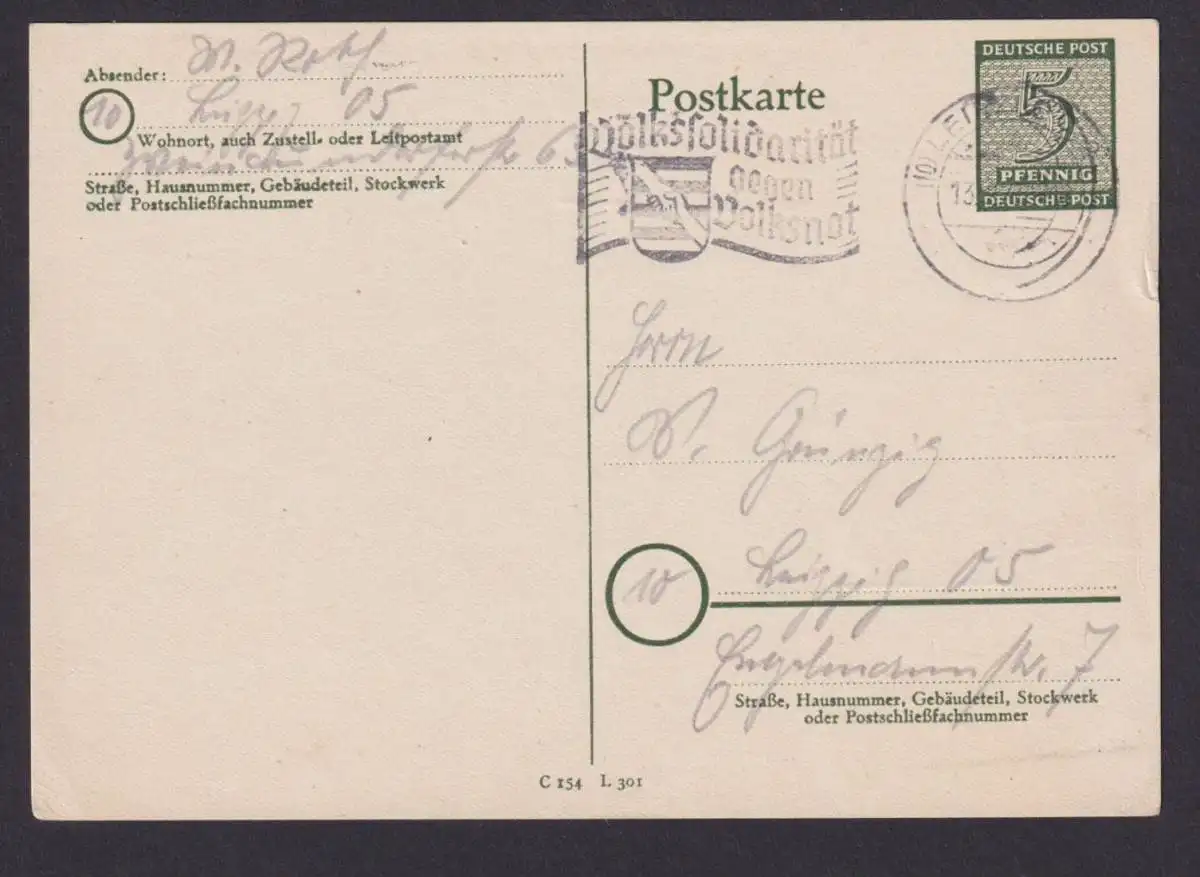 Absender: W.
10 Leipzig O5
Wohnort, auch Zustell- oder Leitpostamt
63
Straße, Hausnummer, Gebäudeteil, Stockwerk
oder Postschließfachnummer
Postkarte
DEUTSCHE POST
5
PFENNIG
DEUTSCHE POST
Volkssolidarität
gegen
Volksnot
(10) LEI
13
Herrn
W. Grünzig
10 Leipzig O5
str. 7
Straße, Hausnummer, Gebäudeteil, Stockwerk
oder Postschließfachnummer
C 154 L 301